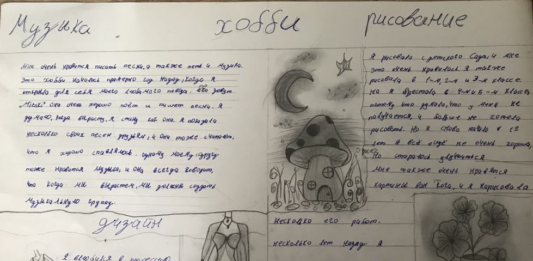 Музыка
хобби
рисование
Мне очень нравится писать песни, а также петь и музыка.
Это хобби началось примерно год назад, когда я
открыла для себя моего любимого певца. Его зовут
она очень хорошо поёт и пишет песни, я
думаю, когда вырасту, я стану как она. Я показала
несколько своих песен друзьям, и они тоже считают,
что я хорошо справляюсь. Одному моему другу
тоже нравится музыка, и она всегда говорит,
что когда мы вырастем, мы должны создать
музыкальную группу.
дизайн
Я рисовала с детского сада, и мне
это очень нравилось. Я также
рисовала в 1-м, 2-м и 3-м классе
Но я
потому что думала, что у меня не
получается, и больше не хотела
рисовать. Но я снова начала в
это и всё ещё не очень хорошо,
но стараюсь
Мне также очень нравятся
картины Ван Гога, и я нарисовала
несколько его работ.
несколько лет назад я